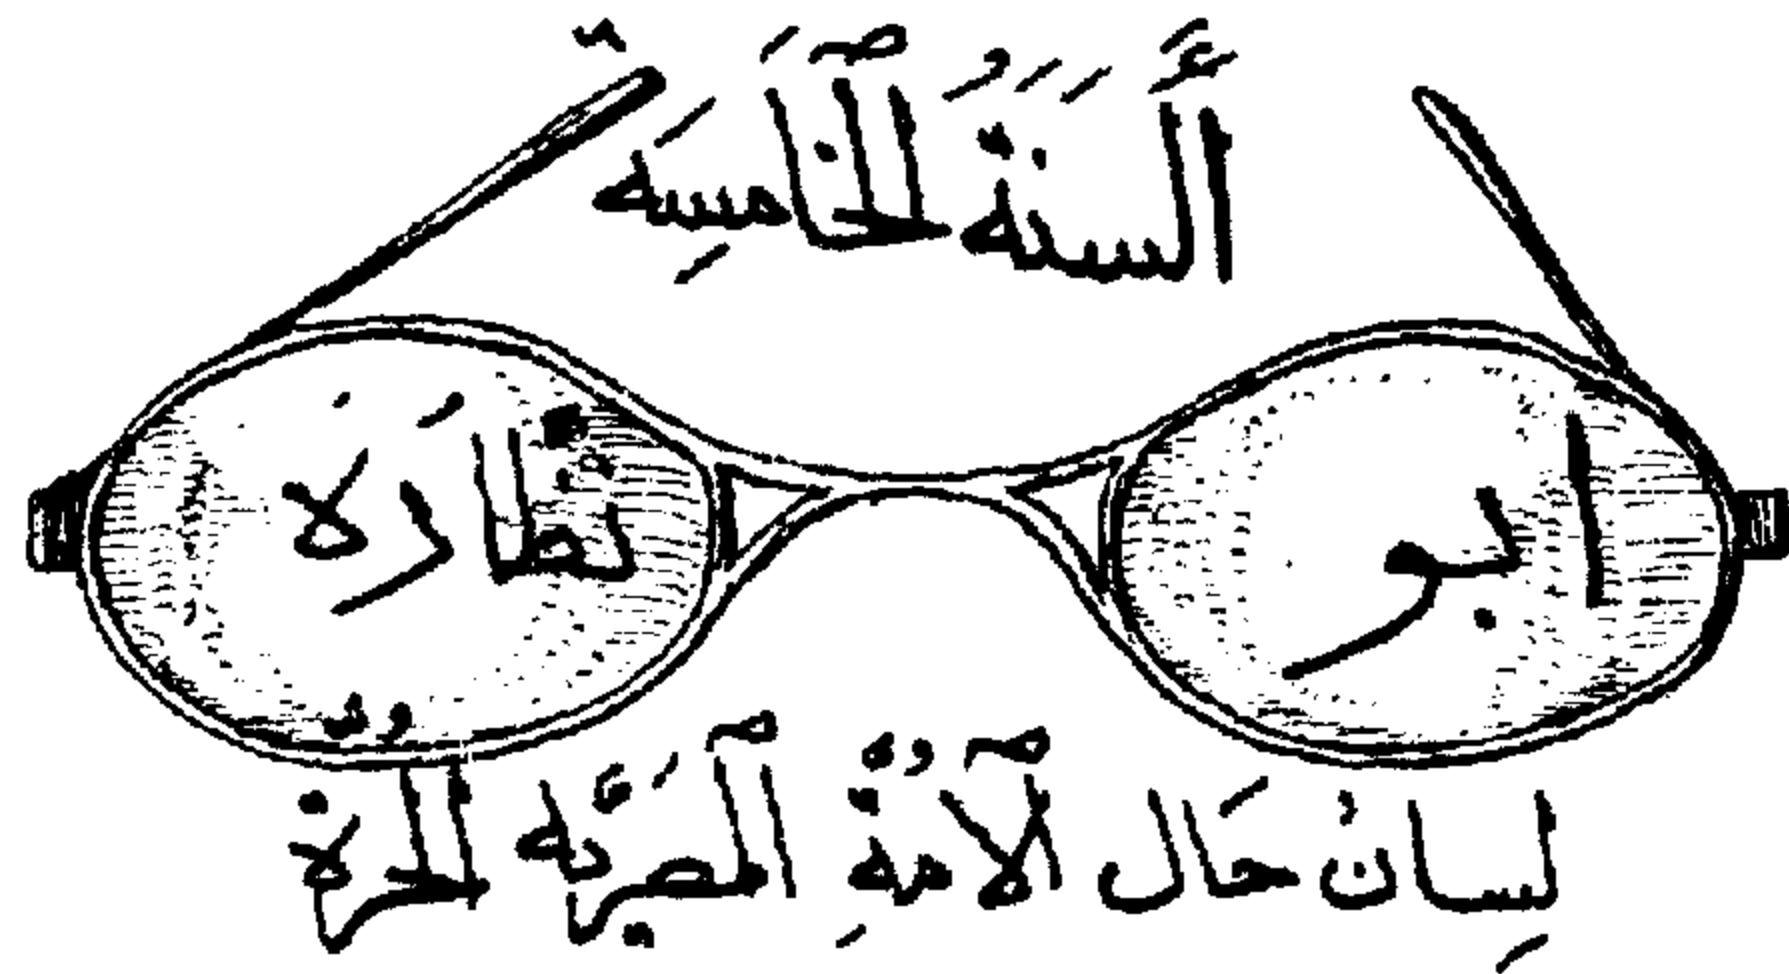 أَلسَّنَةُ الْخَامِسَة
ابو نظَارَة
لِسانُ حَال الْأمةِ الْمصرِيَّه الحُرة